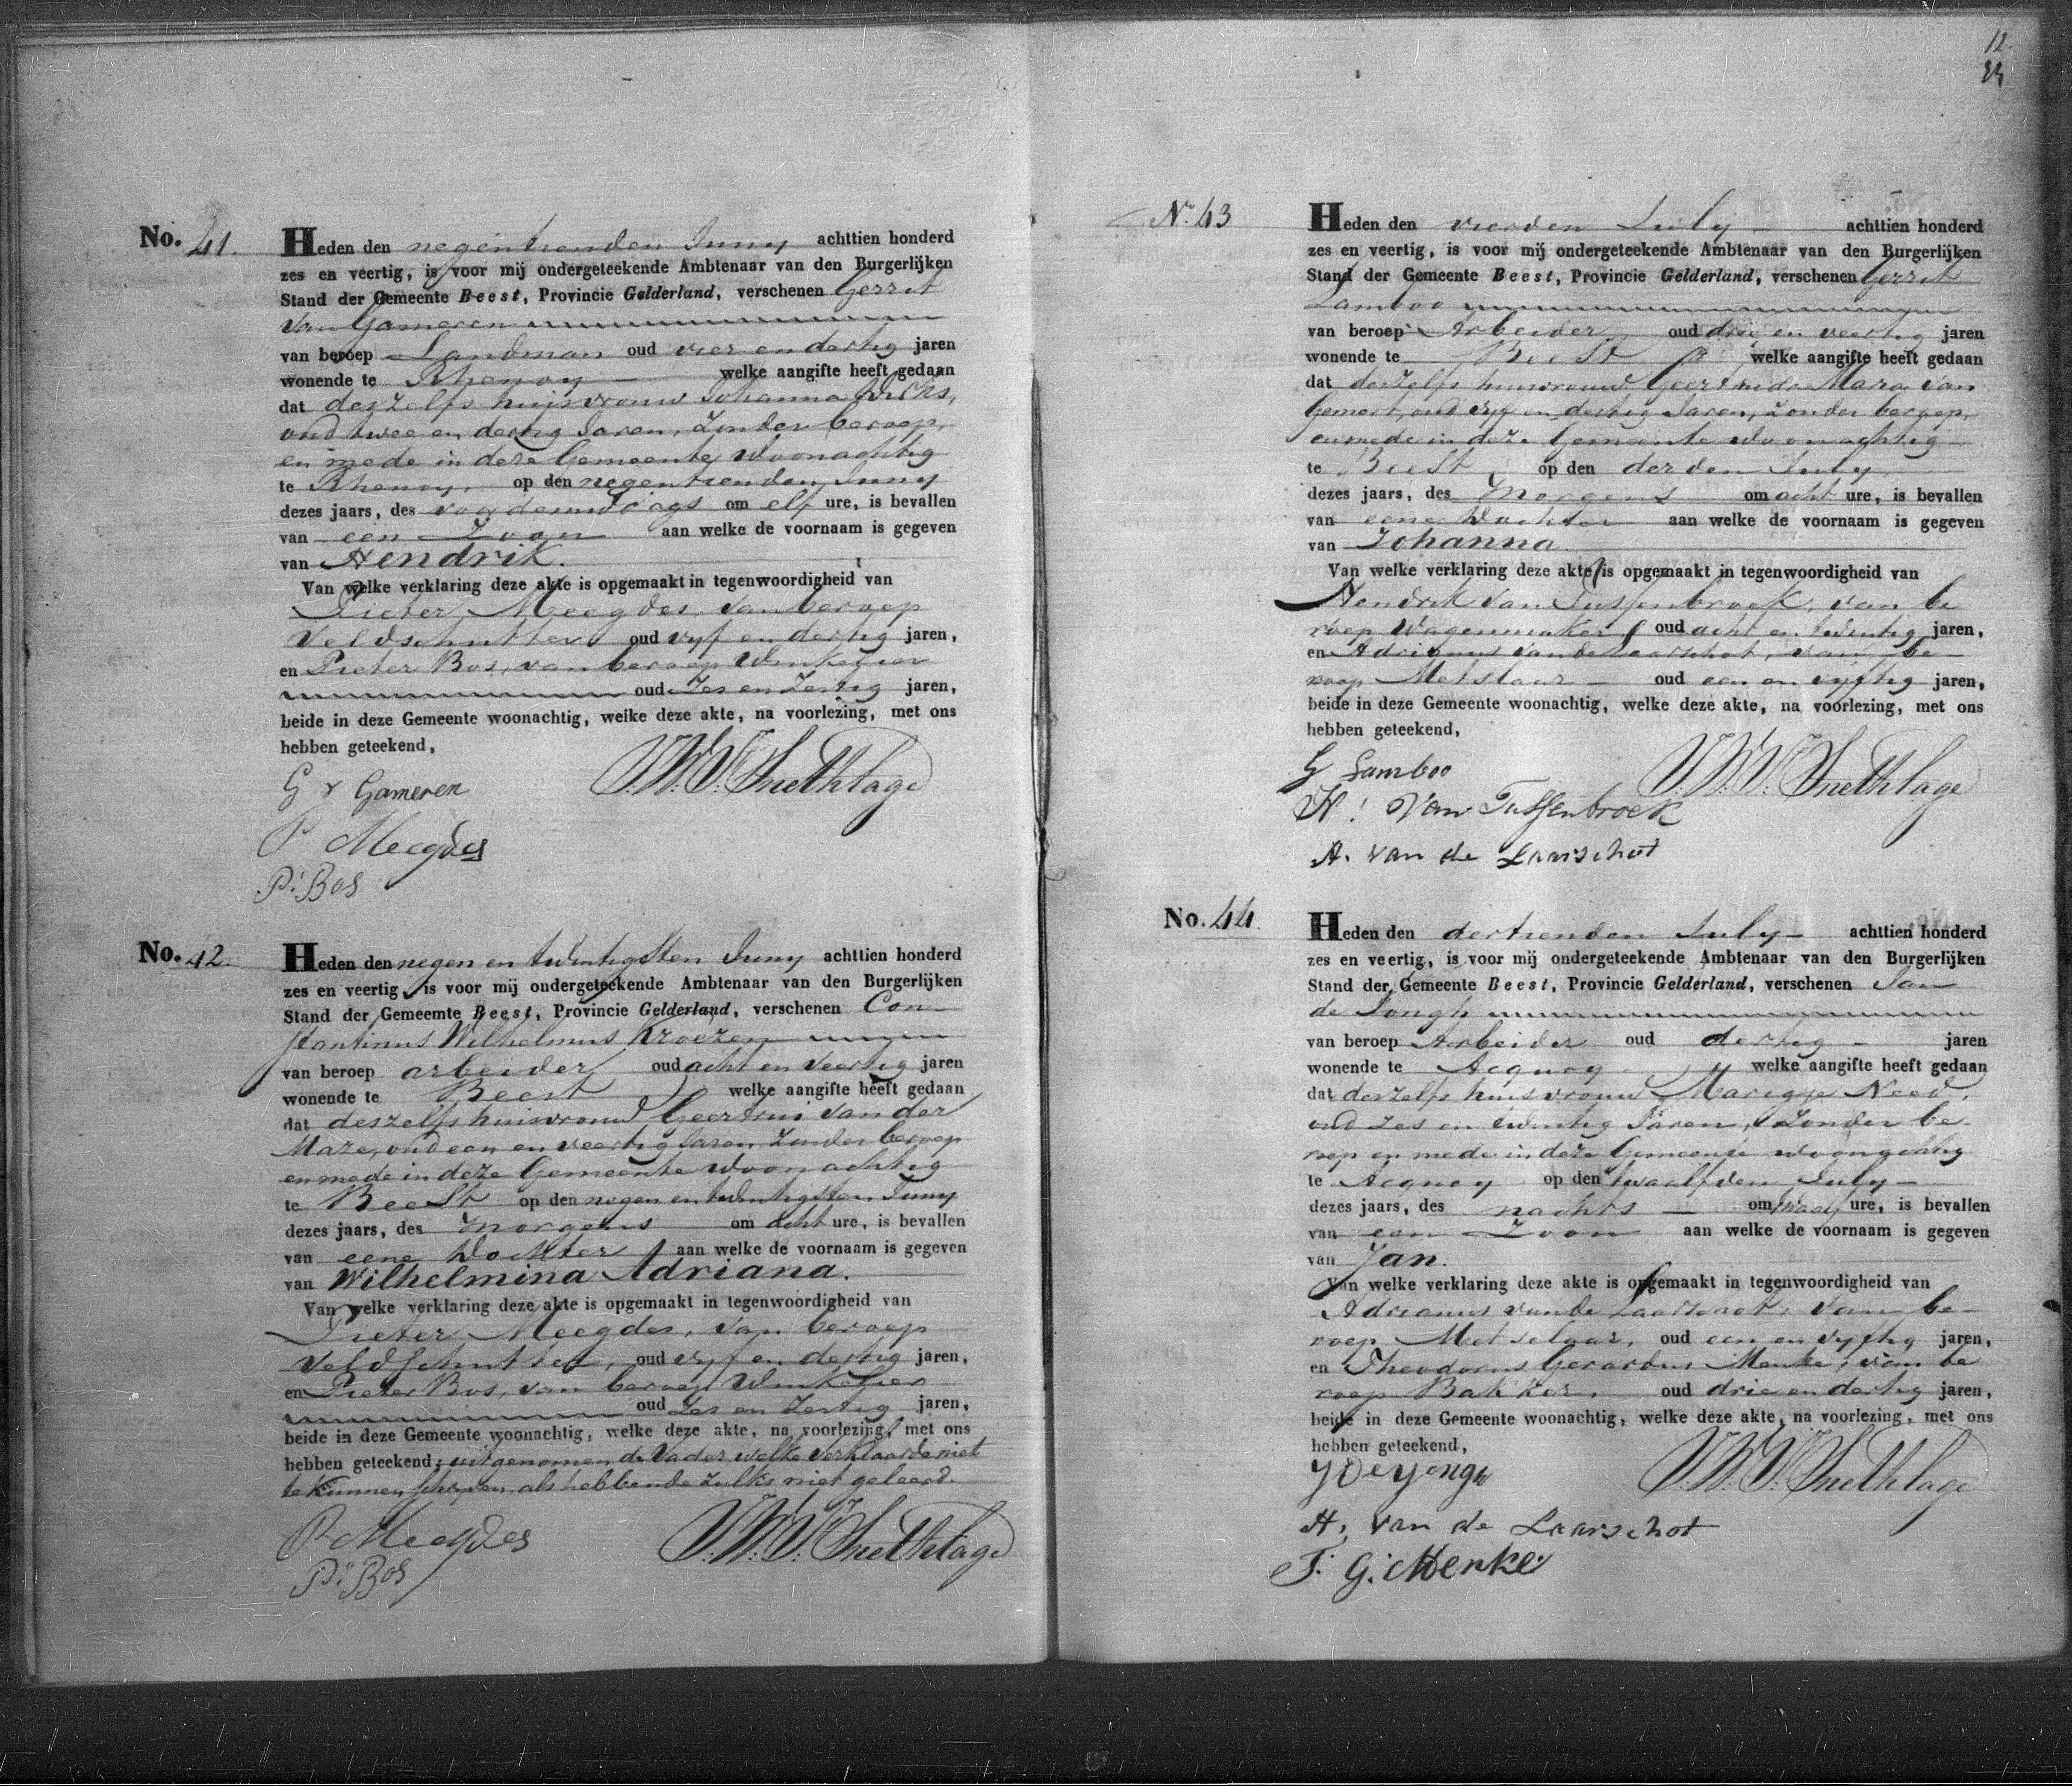 12.
No. 41.
Heden den negentienden Juny achttien honderd
zes en veertig, is voor mij ondergeteekende Ambtenaar van den Burgerlijken
Stand der Gemeente Beest, Provincie Gelderland, verschenen Gerrit
van Gameren
van beroep Landman oud vier en dertig jaren
wonende te Rhenoy welke aangifte heeft gedaan
dat deszelfs huisvrouw Johanna
oud twee en dertig Jaren, zonder beroep,
en mede in deze Gemeente woonachtig
te Rhenoy, op den negentienden Juny
dezes jaars, des voordemiddags om elf ure, is bevallen
van een Zoon aan welke de voornaam is gegeven
van Hendrik.
Van welke verklaring deze akte is opgemaakt in tegenwoordigheid van
Pieter Meegdes, van beroep
Veldschutter oud vyf en dertig jaren,
en Pieter Bos, van beroep Winkelier
oud Zes en Zestig jaren,
beide in deze Gemeente woonachtig, welke deze akte, na voorlezing, met ons
hebben geteekend,
G v Gameren
J.W.V. Snethlage
P Meegdes
P: Bos
No. 42.
Heden den negen en twintigsten Juny achttien honderd
zes en veertig, is voor mij ondergeteekende Ambtenaar van den Burgerlijken
Stand der Gemeemte Beest, Provincie Gelderland, verschenen Con-
stantinus Wilhelmus Kroezen
van beroep arbeider oud acht en veertig jaren
wonende te Beest welke aangifte heeft gedaan
dat deszelfs huisvrouw Geertrui van der
Maze, oud een en veertig Jaren Zonder beroep
en mede in deze Gemeente woonachtig
te Beest op den negen en twintigsten Juny
dezes jaars, des morgens om acht ure, is bevallen
van eene Dochter aan welke de voornaam is gegeven
van Wilhelmina Adriana.
Van welke verklaring deze akte is opgemaakt in tegenwoordigheid van
Pieter Meegdes, van beroep
Veldschutter, oud vyf en dertig jaren,
en Pieter Bos, van beroep Winkelier
oud Zes en Zestig jaren,
beide in deze Gemeente woonachtig, welke deze akte, na voorlezing, met ons
hebben geteekend; uitgenomen de Vader welke verklaarde niet
te kunnen schryven, als hebbende zulks niet geleerd.
P Meegdes
J.W.V. Snethlage
P: Bos
N. 43
Heden den vierden July achttien honderd
zes en veertig, is voor mij ondergeteekende Ambtenaar van den Burgerlijken
Stand der Gemeente Beest, Provincie Gelderland, verschenen Gerrit
Lamboo
van beroep Arbeider oud drie en veertig jaren
wonende te Beest welke aangifte heeft gedaan
dat deszelfs huisvrouw Geertruida Mara van
Gemert, oud vyf en dertig Jaren, Zonder beroep,
en mede in deze Gemeente woonachtig
te Beest, op den derden July
dezes jaars, des Morgens om acht ure, is bevallen
van eene Dochter aan welke de voornaam is gegeven
van Johanna.
Van welke verklaring deze akte is opgemaakt in tegenwoordigheid van
Hendrik van Tussenbroek, van be
roep Wagenmaker oud acht en twintig jaren,
en Adrianus van de Laarschot, van be-
roep Metslaar oud een en vyftig jaren,
beide in deze Gemeente woonachtig, welke deze akte, na voorlezing, met ons
hebben geteekend,
G Lamboo
J.W.V. Snethlage
H: Van Tussenbroek
A. van de Laarschot
No. 44.
Heden den dertienden July achttien honderd
zes en veertig, is voor mij ondergeteekende Ambtenaar van den Burgerlijken
Stand der Gemeente Beest, Provincie Gelderland, verschenen Jan
de Jongh
van beroep Arbeider oud dertig jaren
wonende te Acquoy welke aangifte heeft gedaan
dat deszelfs huisvrouw Marigje
oud zes en twintig Jaren, Zonder be-
roep en mede in deze Gemeente woonachtig
te Acquoy op den twaalfden July
dezes jaars, des nachts om twaalf ure, is bevallen
van een Zoon aan welke de voornaam is gegeven
van Jan.
Van welke verklaring deze akte is opgemaakt in tegenwoordigheid van
Adrianus van de Laarschot, van be-
roep Metselaar, oud een en vyftig jaren,
en Theodorus Gerardus Menke, van be
roep Bakker, oud drie en dertig jaren,
beide in deze Gemeente woonachtig, welke deze akte, na voorlezing, met ons
hebben geteekend,
J De Jongh
J.W.V. Snethlage
A. van de Laarschot
T. G. Menke